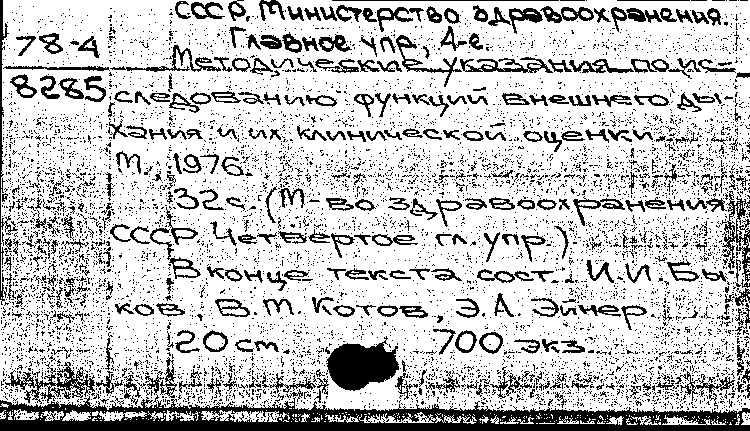 СССР. Министерство здравоохранения.
78-4 Главное упр., 4-е.
Методические указания по ис-
8285 следованию функций внешнего ды-
хания и их клинической оценки.
М., 1976.
32 с. (М-во здравоохранения
СССР. Четвертое гл. упр.)
В конце текста сост.: И.И. Бы
ков, В.М. Котов, Э.А. Эйнер.
20 см. 700 экз.